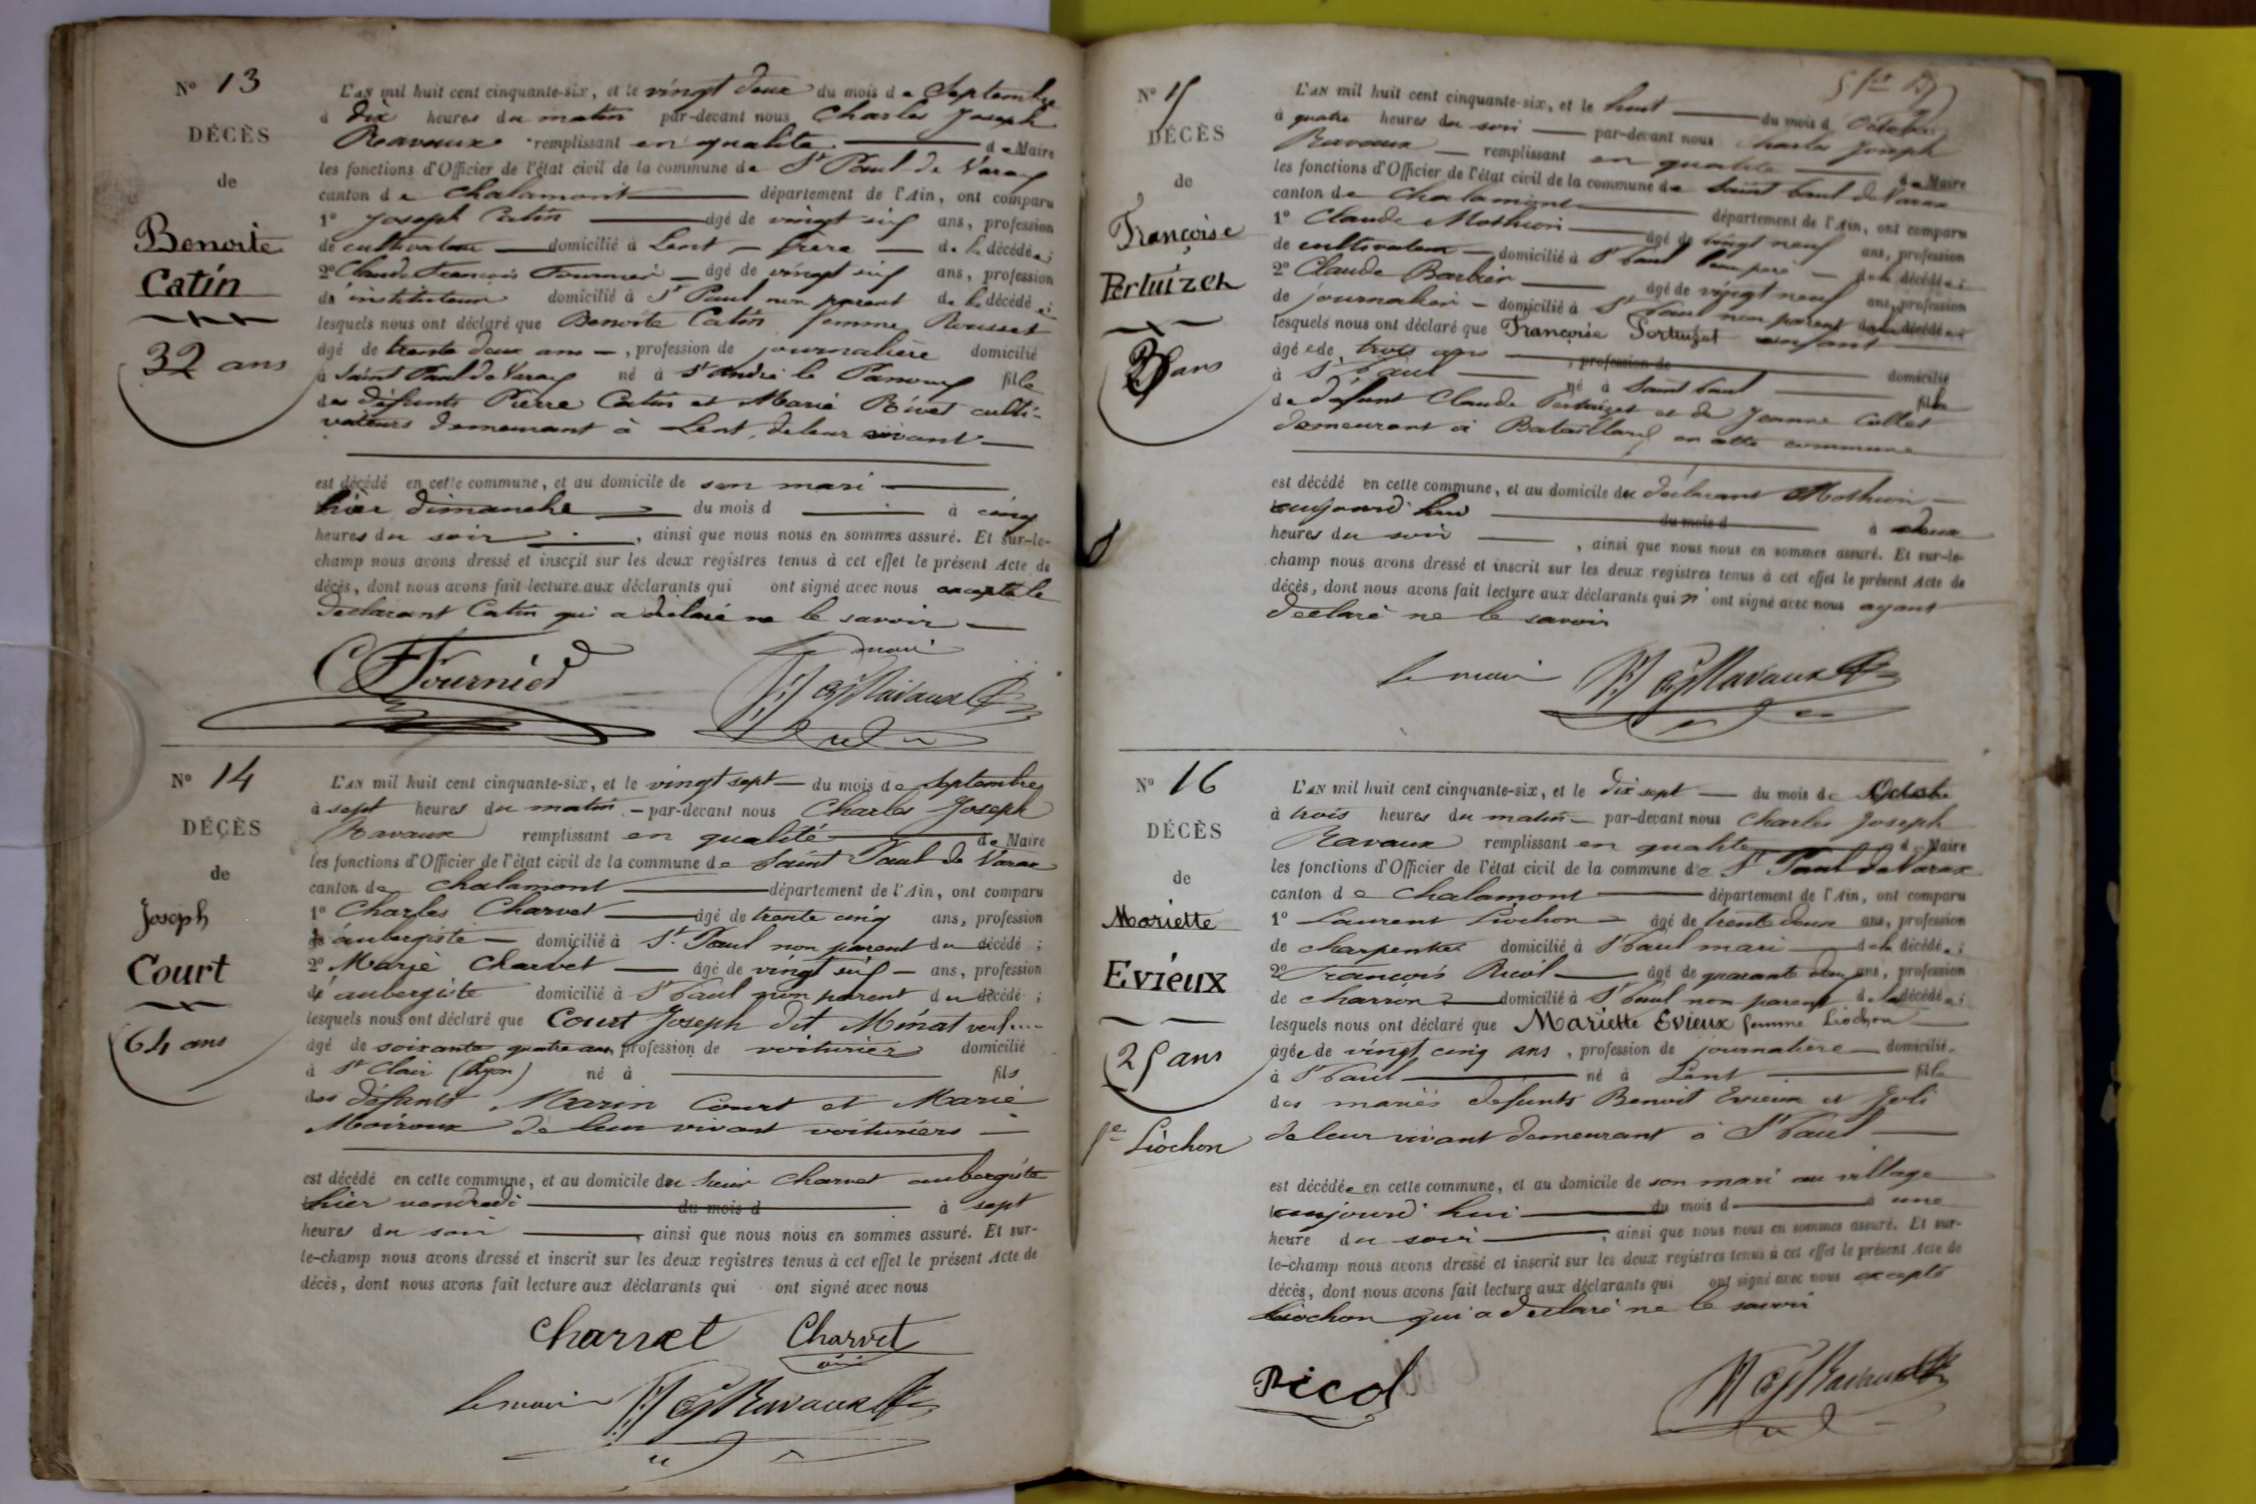 N° 13
DÉCÈS
de
Benoite
Catin
32 ans
L'AN mil huit cent cinquante-six, et le vingt deux du mois de Septembre
à dix heures du matin par-devant nous Charles Joseph
Ravaux remplissant en qualité de Maire
les fonctions d'Officier de l'état civil de la commune de St Paul de Varax
canton de Chalamont département de l'Ain, ont comparu
1° Joseph Catin âgé de vingt six ans, profession
de cultivateur domicilié à Lent frere de la décédée;
2° Claude François Fournier âgé de vingt six ans, profession
d'instituteur domicilié à St Paul non parent de la décédée;
lesquels nous ont déclaré que Benoite Catin femme Rousset
âgé de trente deux ans, profession de journalière domicilié
à Saint Paul de Varax né à St André le Panoux fille
des défunts Pierre Catin et Marie Rivet culti-
vateurs demeurant à Lent, de leur vivant
est décédé en cette commune, et au domicile de son mari
hier dimanche du mois d à cinq
heures du soir, ainsi que nous nous en sommes assuré. Et sur-le-
champ nous avons dressé et inscrit sur les deux registres tenus à cet effet le présent Acte de
décès, dont nous avons fait lecture aux déclarants qui ont signé avec nous excepté le
déclarant Catin qui a déclaré ne le savoir
le maire
CF Fournier
Ravaux
N° 14
DÉCÈS
de
Joseph
Court
64 ans
L'AN mil huit cent cinquante-six, et le vingt sept du mois de Septembre
à sept heures du matin par-devant nous Charles Joseph
Ravaux remplissant en qualité de Maire
les fonctions d'Officier de l'état civil de la commune de Saint Paul de Varax
canton de Chalamont département de l'Ain, ont comparu
1° Charles Charvet âgé de trente cinq ans, profession
d'aubergiste domicilié à St Paul non parent du décédé;
2° Marie Charvet âgé de vingt six ans, profession
d'aubergiste domicilié à St Paul non parent du décédé;
lesquels nous ont déclaré que Court Joseph dit Minat
âgé de soixante quatre ans, profession de voiturier domicilié
à St Clair (Lyon) né à fils
des défunts Marin Court et Marie
Moiroux de leur vivant voituriers
est décédé en cette commune, et au domicile du sieur Charvet aubergiste
hier vendredi du mois d à sept
heures du soir, ainsi que nous nous en sommes assuré. Et sur-
le-champ nous avons dressé et inscrit sur les deux registres tenus à cet effet le présent Acte de
décès, dont nous avons fait lecture aux déclarants qui ont signé avec nous
Charvet Charvet
le maire Ravaux
N° 15
DÉCÈS
de
Françoise
Pertuizet
3 ans
L'AN mil huit cent cinquante-six, et le huit du mois d'Octobre
à quatre heures du soir par-devant nous Charles Joseph
Ravaux remplissant en qualité de Maire
les fonctions d'Officier de l'état civil de la commune de Saint Paul de Varax
canton de Chalamont département de l'Ain, ont comparu
1° Claude Mothion âgé de vingt neuf ans, profession
de cultivateur domicilié à St Paul de la décédée;
2° Claude Barbier âgé de vingt neuf ans, profession
de journalier domicilié à St Paul non parent de la décédée;
lesquels nous ont déclaré que Françoise Pertuizet enfant
âgée de trois ans, profession de domicilié
à St Paul né à Saint Paul fille
de défunt Claude Pertuizet et de Jeanne Collet
demeurant à Bataillard en cette commune
est décédé en cette commune, et au domicile du déclarant Mothion
aujourd'hui du mois d à deux
heures du soir, ainsi que nous nous en sommes assuré. Et sur-le-
champ nous avons dressé et inscrit sur les deux registres tenus à cet effet le présent Acte de
décès, dont nous avons fait lecture aux déclarants qui n'ont signé avec nous ayant
déclaré ne le savoir
le maire Ravaux
N° 16
DÉCÈS
de
Mariette
Evieux
25 ans
fe Liochon
L'AN mil huit cent cinquante-six, et le dix sept du mois de Octobre
à trois heures du matin par-devant nous Charles Joseph
Ravaux remplissant en qualité de Maire
les fonctions d'Officier de l'état civil de la commune de St Paul de Varax
canton de Chalamont département de l'Ain, ont comparu
1° Laurent Liochon âgé de trente deux ans, profession
de charpentier domicilié à St Paul mari de la décédée;
2° François Ricol âgé de quarante deux ans, profession
de charron domicilié à St Paul non parent de la décédée;
lesquels nous ont déclaré que Mariette Evieux femme Liochon
âgée de vingt cinq ans, profession de journalière domicilié
à St Paul né à Lent fille
des mariés défunts Benoit Evieux et Joli
de leur vivant demeurant à St Paul
est décédée en cette commune, et au domicile de son mari au village
aujourd'hui du mois d à une
heure du soir, ainsi que nous nous en sommes assuré. Et sur-
le-champ nous avons dressé et inscrit sur les deux registres tenus à cet effet le présent Acte de
décès, dont nous avons fait lecture aux déclarants qui ont signé avec nous excepté
Liochon qui a déclaré ne le savoir
Ricol Ravaux